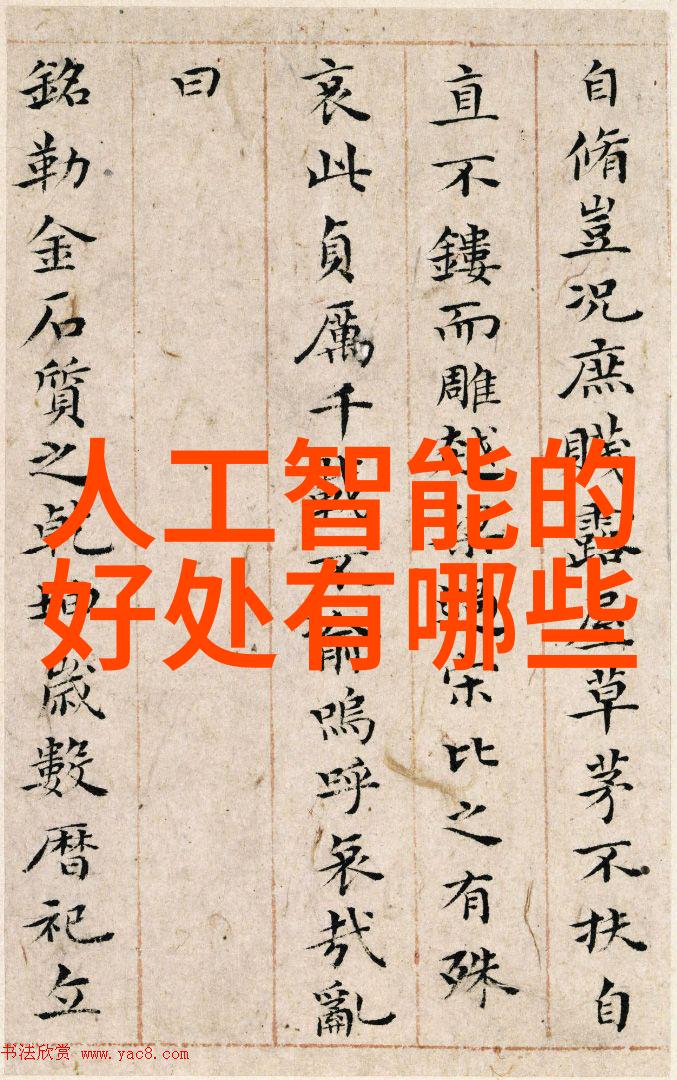 自脩豈況庶賤露屋草茅不扶自
直不鏤而雕越梁過宋比之有殊
哀此貞厲千載不渝嗚呼哀哉亂
曰
銘勒金石質之乾坤歲數暦祀立
人工智能的
好处有哪些
书法欣赏 www.yac8.com